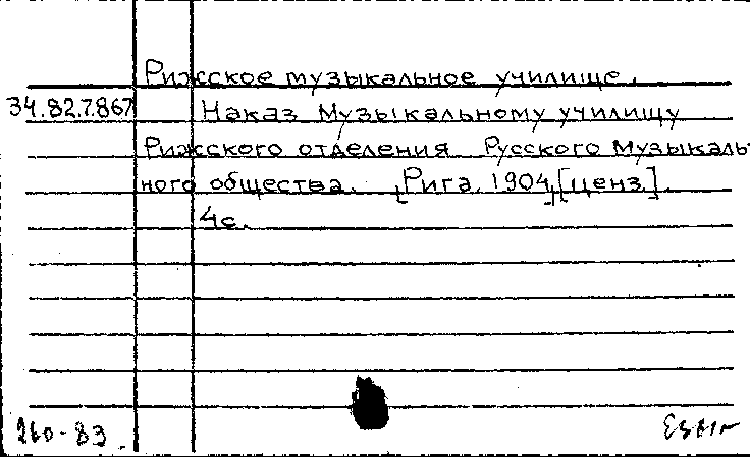 Рижское музыкальное училище.
34.82.7.867 Наказ Музыкальному училищу
Рижского отделения Русского Музыкаль-
ного общества. [Рига, 1904] [ценз].
4с.
260-83